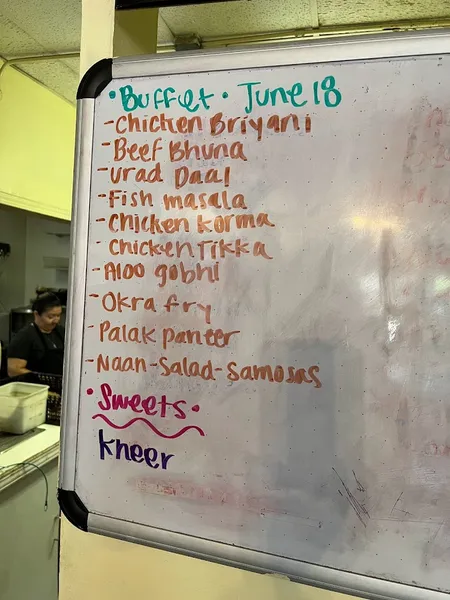 • Buffet • June 18
- Chicken Briyani
- Beef Bhuna
- Urad Daal
- Fish masala
- Chicken Korma
- Chicken Tikka
- Aloo gobhi
- Okra fry
- Palak panter
- Naan - Salad - Samosas
• Sweets •
kheer